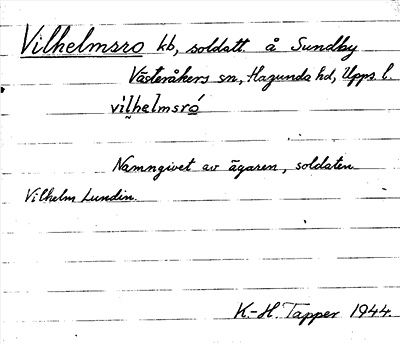 Vilhelmsro kb, soldatt. å Sundby
Västeråkers sn, Hagunda hd, Upps. l.
vilhelmsró
Namngivet av ägaren, soldaten
Vilhelm Lundin.
K.-H. Tapper 1944.